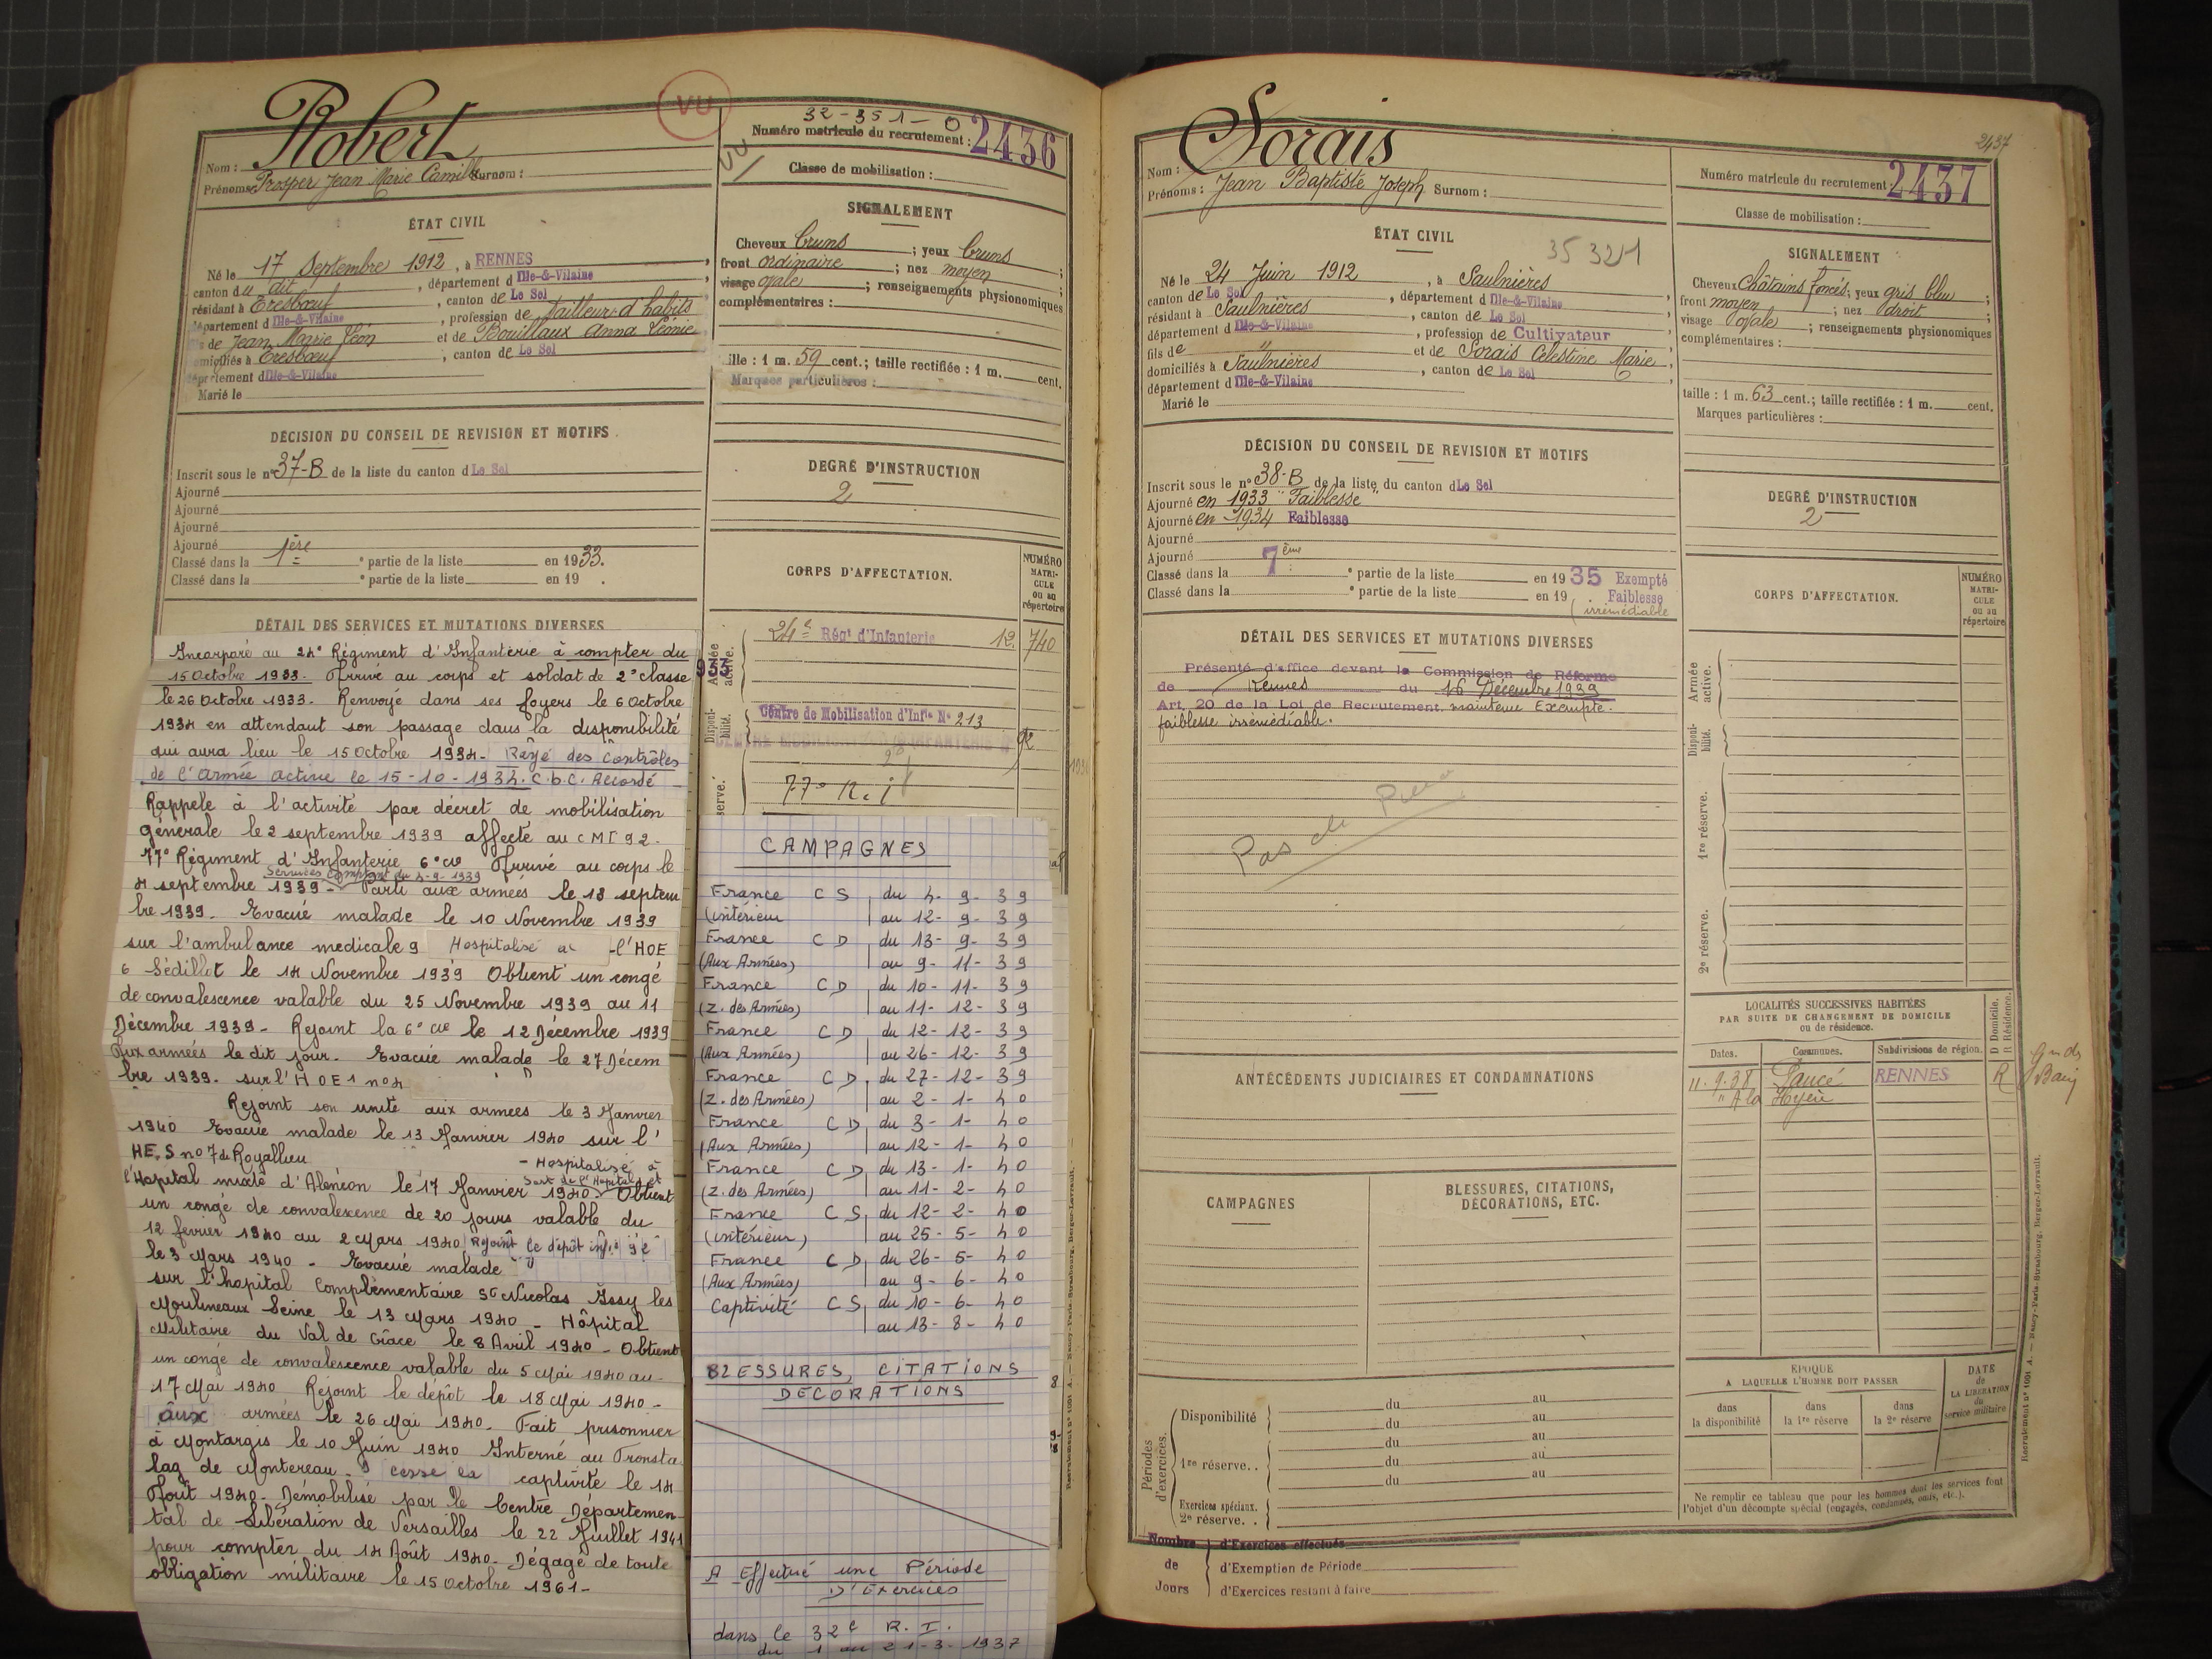 Robert
VU
32-351-0
Numéro matricule du recrutement : 2436
VU
Nom :
Prénoms : Prosper Jean Marie Camille Surnom :
Classe de mobilisation :
ÉTAT CIVIL
Né le 17 Septembre 1912, à RENNES,
canton du dit, département d'Ille-&-Vilaine
résidant à Tresbœuf, canton de Le Sel
département d'Ille-&-Vilaine, profession de tailleur d'habits
de Jean Marie Léon et de Bouillaux Anna Léonie
domiciliés à Tresbœuf, canton de Le Sel
département d'Ille-&-Vilaine
Marié le
SIGNALEMENT
Cheveux bruns ; yeux bruns ;
front ordinaire ; nez moyen ;
visage ovale ; renseignements physionomiques
complémentaires :
taille : 1 m. 59 cent. ; taille rectifiée : 1 m. cent.
Marques particulières :
DÉCISION DU CONSEIL DE REVISION ET MOTIFS
Inscrit sous le n° 37-B de la liste du canton d Le Sel
Ajourné
Ajourné
Ajourné
Ajourné
Classé dans la 1ère partie de la liste en 1933.
Classé dans la e partie de la liste en 19 .
DEGRÉ D'INSTRUCTION
2
DÉTAIL DES SERVICES ET MUTATIONS DIVERSES
Incorporé au 24e Régiment d'Infanterie à compter du
15 Octobre 1933. Arrivé au corps et soldat de 2e classe
le 26 Octobre 1933. Renvoyé dans ses foyers le 6 Octobre
1934 en attendant son passage dans la disponibilité
qui aura lieu le 15 Octobre 1934. Rayé des Contrôles
de l'armée active le 15-10-1934. C.b.C. Accordé
Rappelé à l'activité par décret de mobilisation
générale le 2 septembre 1939 affecté au CMI 92.
77e Régiment d'Infanterie 6e Cie Arrivé au corps le
Services comptant du 4-9-1939
4 septembre 1939 - Parti aux armées le 13 septem
bre 1939. Evacué malade le 10 Novembre 1939
sur l'ambulance medicale 9 Hospitalisé à l'HOE
6 Sédillot le 14 Novembre 1939 Obtient un congé
de convalescence valable du 25 Novembre 1939 au 11
Décembre 1939 - Rejoint la 6e Cie le 12 Décembre 1939
Aux armées le dit jour. Evacué malade le 27 Décem
bre 1939. sur l'HOE 1 no 4
Rejoint son unité aux armées le 3 Janvier
1940 Evacué malade le 13 Janvier 1940 sur l'
HE.S no 7 de Royallieu - Hospitalisé à
l'Hopital mixte d'Alençon le 17 Janvier 1940. Sort de l'Hopital et Obtient
un congé de convalescence de 20 jours valable du
12 fevrier 1940 au 2 Mars 1940 Rejoint le dépôt infie 92
le 3 Mars 1940 - Evacué malade
sur l'hopital Complémentaire St Nicolas Issy les
Moulineaux Seine le 13 Mars 1940 - Hôpital
Militaire du Val de Grâce le 8 Avril 1940 - Obtient
un congé de convalescence valable du 5 Mai 1940 au
17 Mai 1940 Rejoint le dépôt le 18 Mai 1940 -
aux armées le 26 Mai 1940. Fait prisonnier
à Montargis le 10 Juin 1940 Interné au Fronsta
lag de Montereau - cesse la captivité le 14
Août 1940 - Démobilisé par le Centre Départemen
tal de Libération de Versailles le 22 Juillet 1941
pour compter du 14 Août 1940 - Dégagé de toute
obligation militaire le 15 Octobre 1961 -
CORPS D'AFFECTATION.
NUMÉRO MATRICULE ou au répertoire
Armée active.
933
24e Régt d'Infanterie 12. 740
Disponibilité.
Centre de Mobilisation d'Infie N° 213
92
77e R.i
CAMPAGNES
France CS du 4-9-39
(intérieur au 12-9-39
France CD du 13-9-39
(Aux Armées) au 9-11-39
France CD du 10-11-39
(Z. des Armées) au 11-12-39
France CD du 12-12-39
(Aux Armées) au 26-12-39
France CD du 27-12-39
(Z. des Armées) au 2-1-40
France CD du 3-1-40
(Aux Armées) au 12-1-40
France CD du 13-1-40
(Z. des Armées) au 11-2-40
France CS du 12-2-40
(intérieur) au 25-5-40
France CD du 26-5-40
(Aux Armées) au 9-6-40
Captivité CS du 10-6-40
au 13-8-40
BLESSURES, CITATIONS
DECORATIONS
A Effectué une Période
D'Exercices
dans le 32e R.I.
du 1 au 21-3-1937
Sorais
2437
Numéro matricule du recrutement : 2437
Nom :
Prénoms : Jean Baptiste Joseph Surnom :
Classe de mobilisation :
ÉTAT CIVIL
35 321
Né le 24 Juin 1912, à Saulnières,
canton de Le Sel, département d'Ille-&-Vilaine
résidant à Saulnières, canton de Le Sel
département d'Ille-&-Vilaine, profession de Cultivateur
fils de " et de Sorais Célestine Marie
domiciliés à Saulnières, canton de Le Sel
département d'Ille-&-Vilaine
Marié le
SIGNALEMENT
Cheveux châtains foncés ; yeux gris bleu ;
front moyen ; nez droit ;
visage ovale ; renseignements physionomiques
complémentaires :
taille : 1 m. 63 cent. ; taille rectifiée : 1 m. cent.
Marques particulières :
DÉCISION DU CONSEIL DE REVISION ET MOTIFS
Inscrit sous le n° 38-B de la liste du canton d Le Sel
Ajourné en 1933 "Faiblesse"
Ajourné en 1934 Faiblesse
Ajourné
Ajourné
Classé dans la 7ème partie de la liste en 1935 Exempté
Classé dans la e partie de la liste en 19 . Faiblesse
irrémédiable
DEGRÉ D'INSTRUCTION
2
DÉTAIL DES SERVICES ET MUTATIONS DIVERSES
Présenté d'office devant la Commission de Réforme
de Rennes du 16 Décembre 1939
Art. 20 de la Loi de Recrutement. maintenu Exempté.
faiblesse irrémédiable.
Pas de
CORPS D'AFFECTATION.
NUMÉRO MATRICULE ou au répertoire
Armée active.
Disponibilité.
1re réserve.
2e réserve.
LOCALITÉS SUCCESSIVES HABITÉES
PAR SUITE DE CHANGEMENT DE DOMICILE
ou de résidence.
D Domicile.
R Résidence.
Dates. Communes. Subdivisions de région.
11.9.38 Jancé RENNES R
ANTÉCÉDENTS JUDICIAIRES ET CONDAMNATIONS
CAMPAGNES
BLESSURES, CITATIONS,
DÉCORATIONS, ETC.
Périodes d'exercices.
Disponibilité du au
du au
1re réserve.. du au
du au
du au
Exercices spéciaux.
2e réserve..
ÉPOQUE
A LAQUELLE L'HOMME DOIT PASSER
dans la disponibilité
dans la 1re réserve
dans la 2e réserve
DATE de LA LIBÉRATION du service militaire
Ne remplir ce tableau que pour les hommes dont les services font
l'objet d'un décompte spécial (engagés, condamnés, omis, etc.).
Nombre de Jours
d'Exercices effectués
d'Exemption de Période
d'Exercices restant à faire
Recrutement n° 1001 A. — Nancy-Paris-Strasbourg, Berger-Levrault.